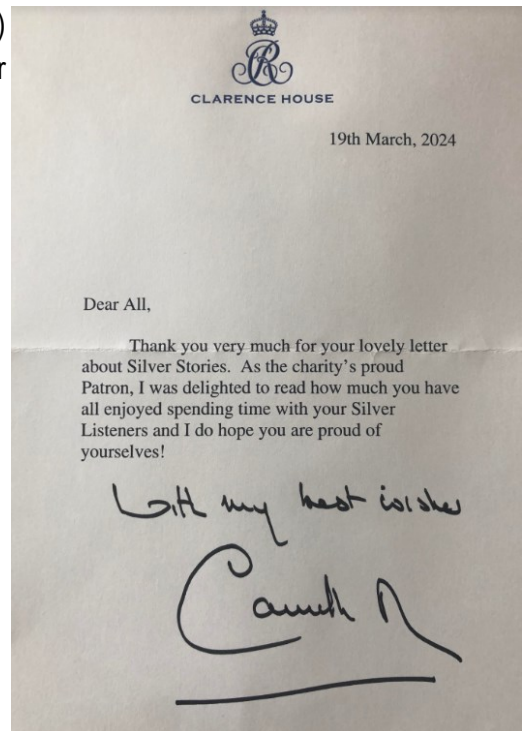 )
r
CR
CLARENCE HOUSE
19th March, 2024
Dear All,
Thank you very much for your lovely letter
about Silver Stories. As the charity's proud
Patron, I was delighted to read how much you have
all enjoyed spending time with your Silver
Listeners and I do hope you are proud of
yourselves!
With my best wishes
Camilla R